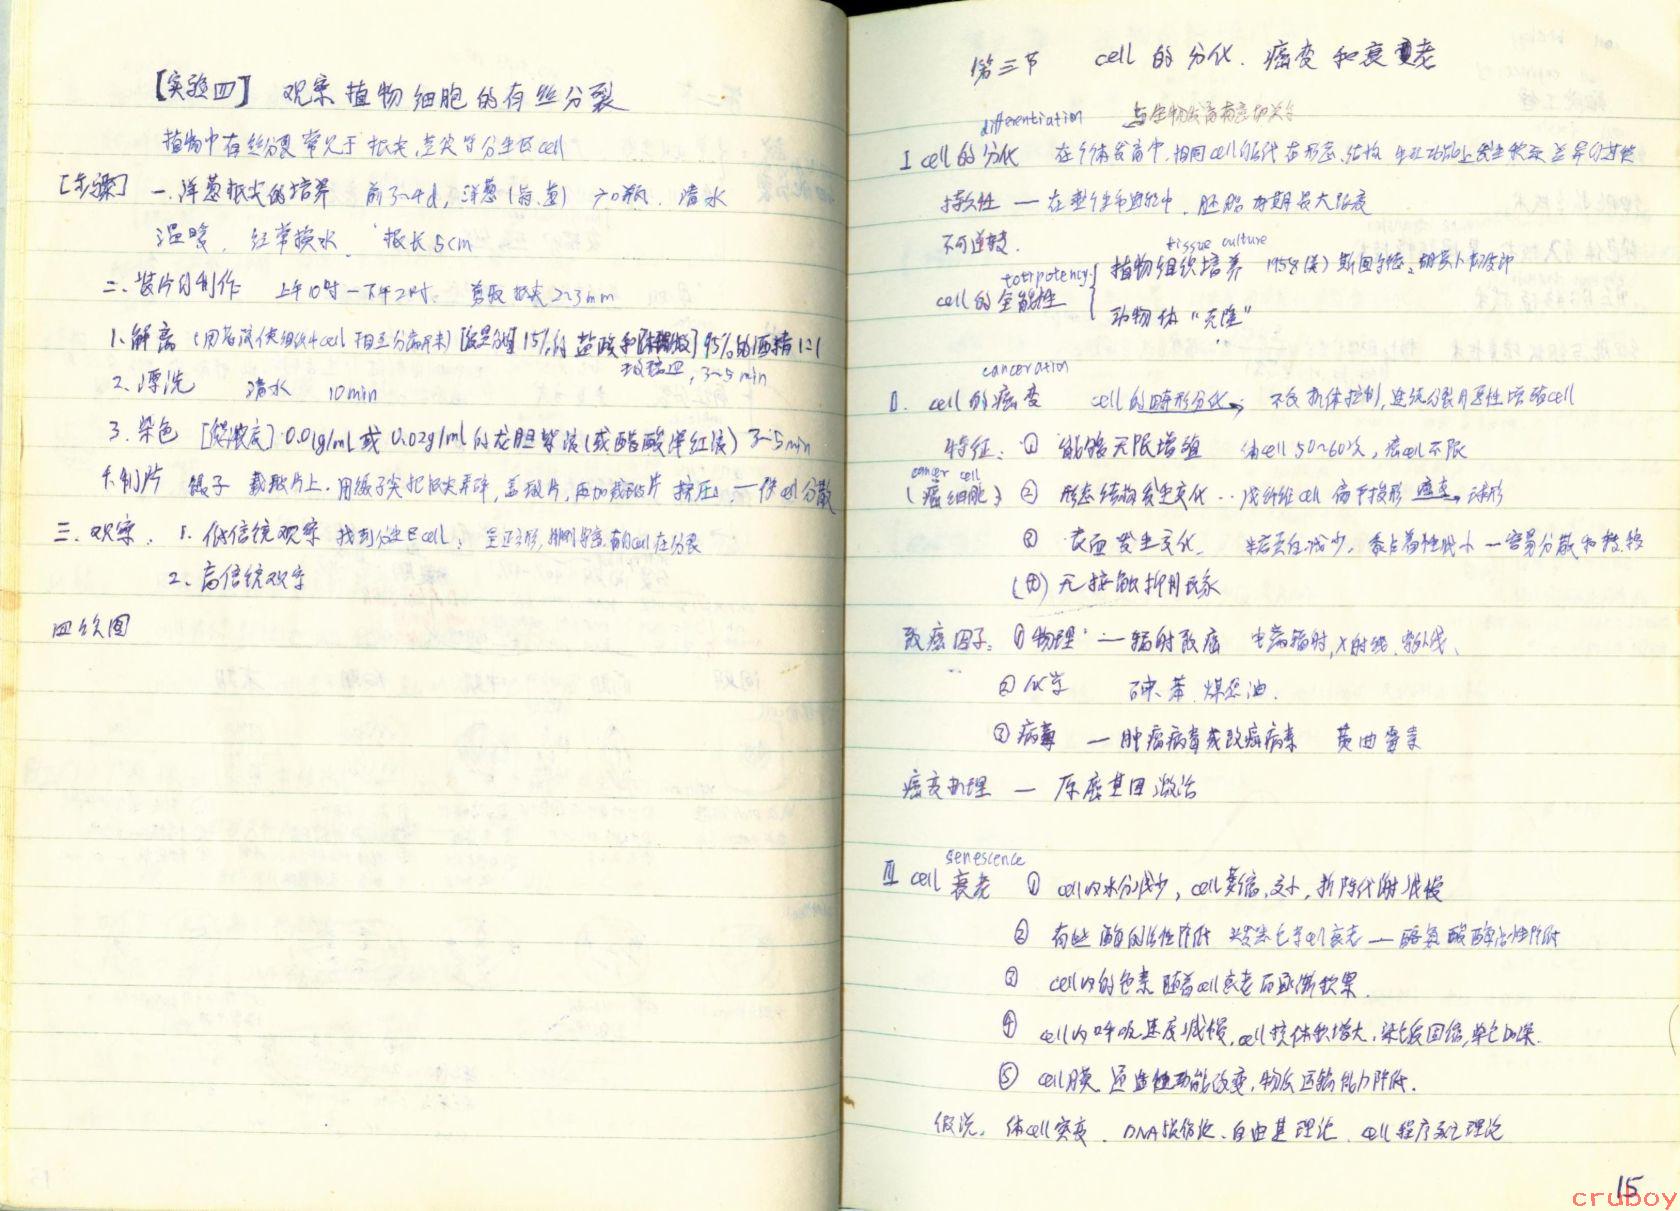 【实验四】 观察植物细胞的有丝分裂
植物中有丝分裂常见于根尖,茎尖等分生区cell
[步骤] 一.洋葱根尖的培养 前3~4d, 洋葱 广口瓶. 清水
温暖, 经常换水 根长5cm
二.装片的制作 上午10时-下午2时. 剪取根尖2~3mm
1.解离 (用药液使组织中cell相互分离开来) 15%的盐酸和 95%的酒精1:1
3~5min
2.漂洗 清水 10min
3.染色 0.01g/mL或0.02g/mL的龙胆紫液(或醋酸洋红液) 3~5min
4.制片 镊子 载玻片上.用镊子尖把根尖弄碎,盖玻片,再加载玻片 挤压. 一使cell分散
三.观察. 1.低倍镜观察 找到分生区cell: 呈正方形,排列紧密,有的cell在分裂
2.高倍镜观察
四绘图
第三节 cell的分化.癌变和衰老
differentiation 与生物发育有密切关系
I cell的分化 在个体发育中,相同cell的后代在形态.结构.生理功能上发生稳定差异的过程
持久性 — 在整个生命进程中.胚胎时期最大限度
不可逆转.
tissue culture
totipotency 植物组织培养 1958(美)斯图尔德.胡萝卜韧皮部
cell的全能性
动物体"克隆"
canceration
II. cell的癌变 cell的畸形分化 不受机体控制,连续分裂的恶性增殖cell
特征: ① 能够无限增殖 体cell 50~60次,癌cell不限
cancer cell
(癌细胞) ② 形态结构发生变化.. 成纤维cell 扁平梭形 癌变→ 球形
③ 表面发生变化. 糖蛋白减少,黏着性减小 —容易分散和转移
(四) 无接触抑制现象
致癌因子: ①物理 — 辐射致癌 电离辐射,X射线.紫外线.
②化学 砷.苯.煤焦油.
③病毒 — 肿瘤病毒或致癌病毒 黄曲霉素
癌变机理 — 原癌基因激活
senescence
III cell 衰老 ① cell内水分减少, cell萎缩,变小,新陈代谢减慢
② 有些酶的活性降低 cell衰老 — 酪氨酸酶活性降低
③ cell内的色素随着cell衰老而逐渐积累.
④ cell内呼吸速度减慢,cell核体积增大,染色质固缩,染色加深.
⑤ cell膜通透性功能改变,物质运输能力降低.
假说. 体cell突变. DNA损伤论.自由基理论. cell程序死亡理论
15
cruboy